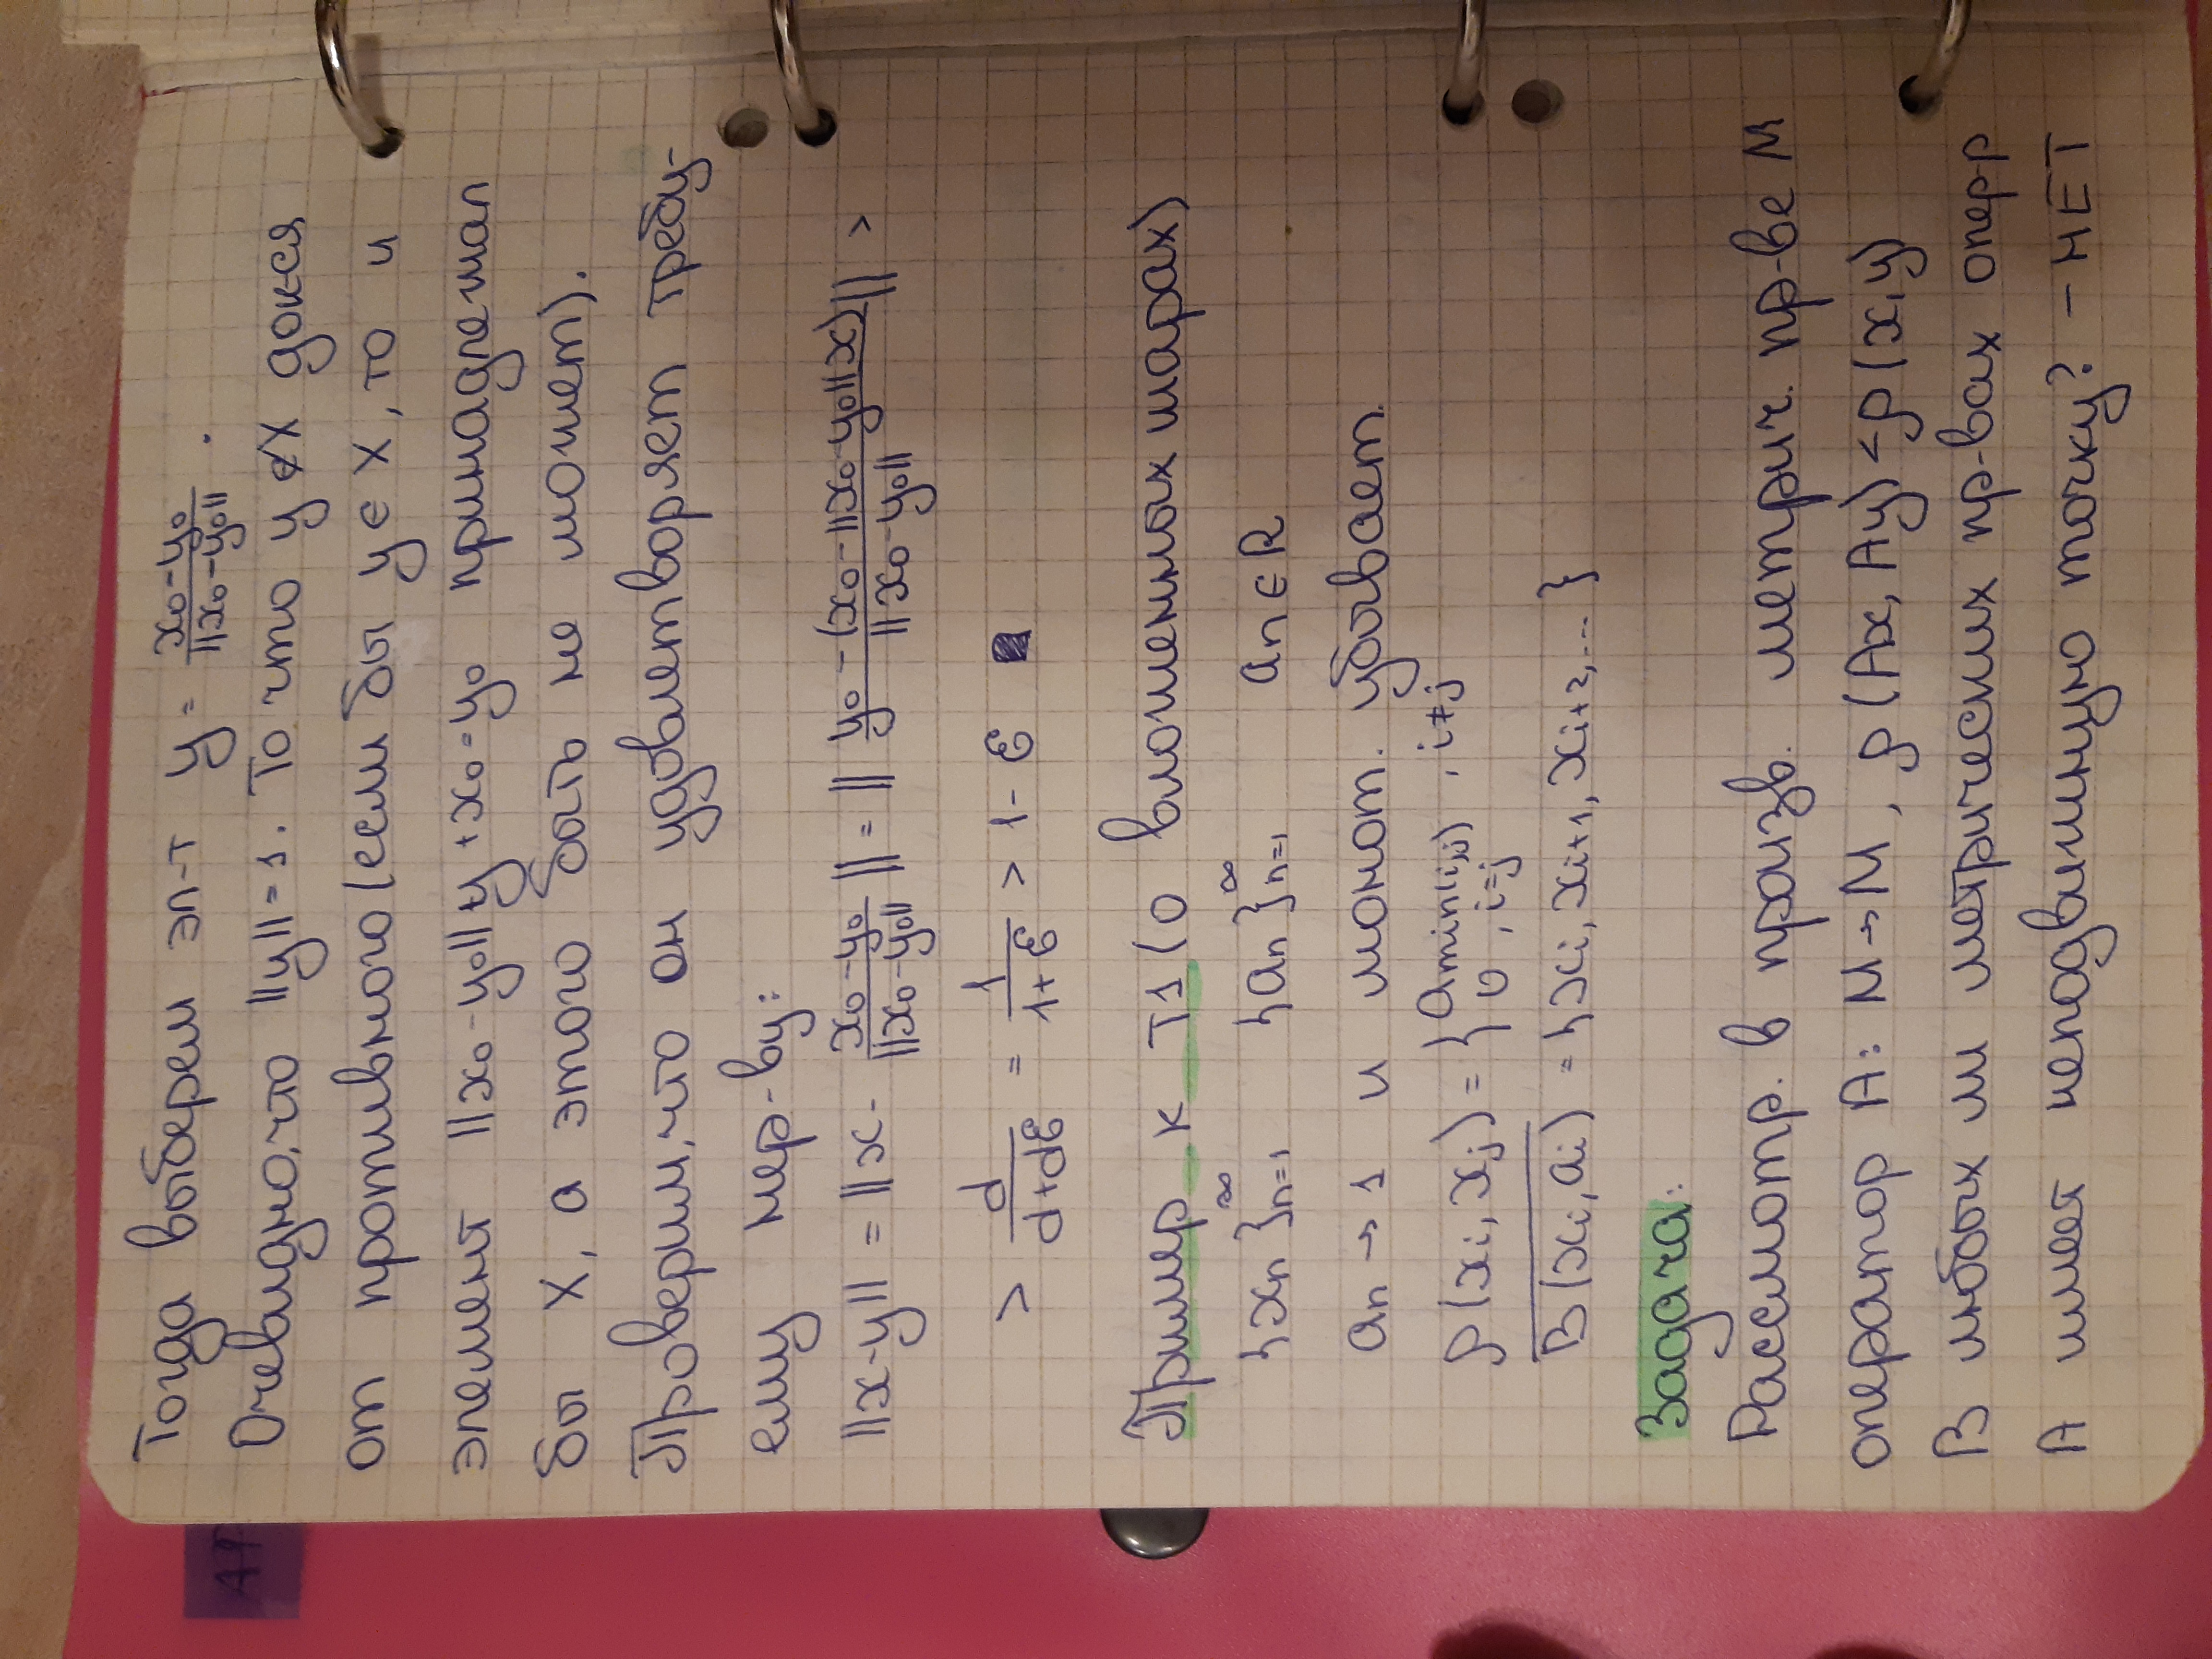 Тогда выберем эл-т y = (x₀-y₀)/||x₀-y₀||.
Очевидно, что ||y||=1. То что y∉X док-ся
от противного (если бы y∈X, то и
элемент ||x₀-y₀||y+x₀=y₀ принадлежал
бы X, а этого быть не может).
Проверим, что он удовлетворяет требу-
ему нер-ву:
||x-y|| = ||x - (x₀-y₀)/||x₀-y₀|| || = || (y₀-(x₀-||x₀-y₀||x))/||x₀-y₀|| || >
> d/(d+dε) = 1/(1+ε) > 1-ε ■
Пример к Т1 (о вложенных шарах)
{xn}ₙ₌₁^∞ {an}ₙ₌₁^∞ an∈R
an→1 и монот. убывает.
ρ(xi, xj) = {amin(i,j), i≠j
0, i=j
B(xi, ai) = {xi, xi+1, xi+2,...}
Задача:
Рассмотр. в произв. метрич. пр-ве M
оператор A: M→M, ρ(Ax, Ay)<ρ(x,y)
В любых ли метрических пр-вах опер-р
A имеет неподвижную точку? - НЕТ